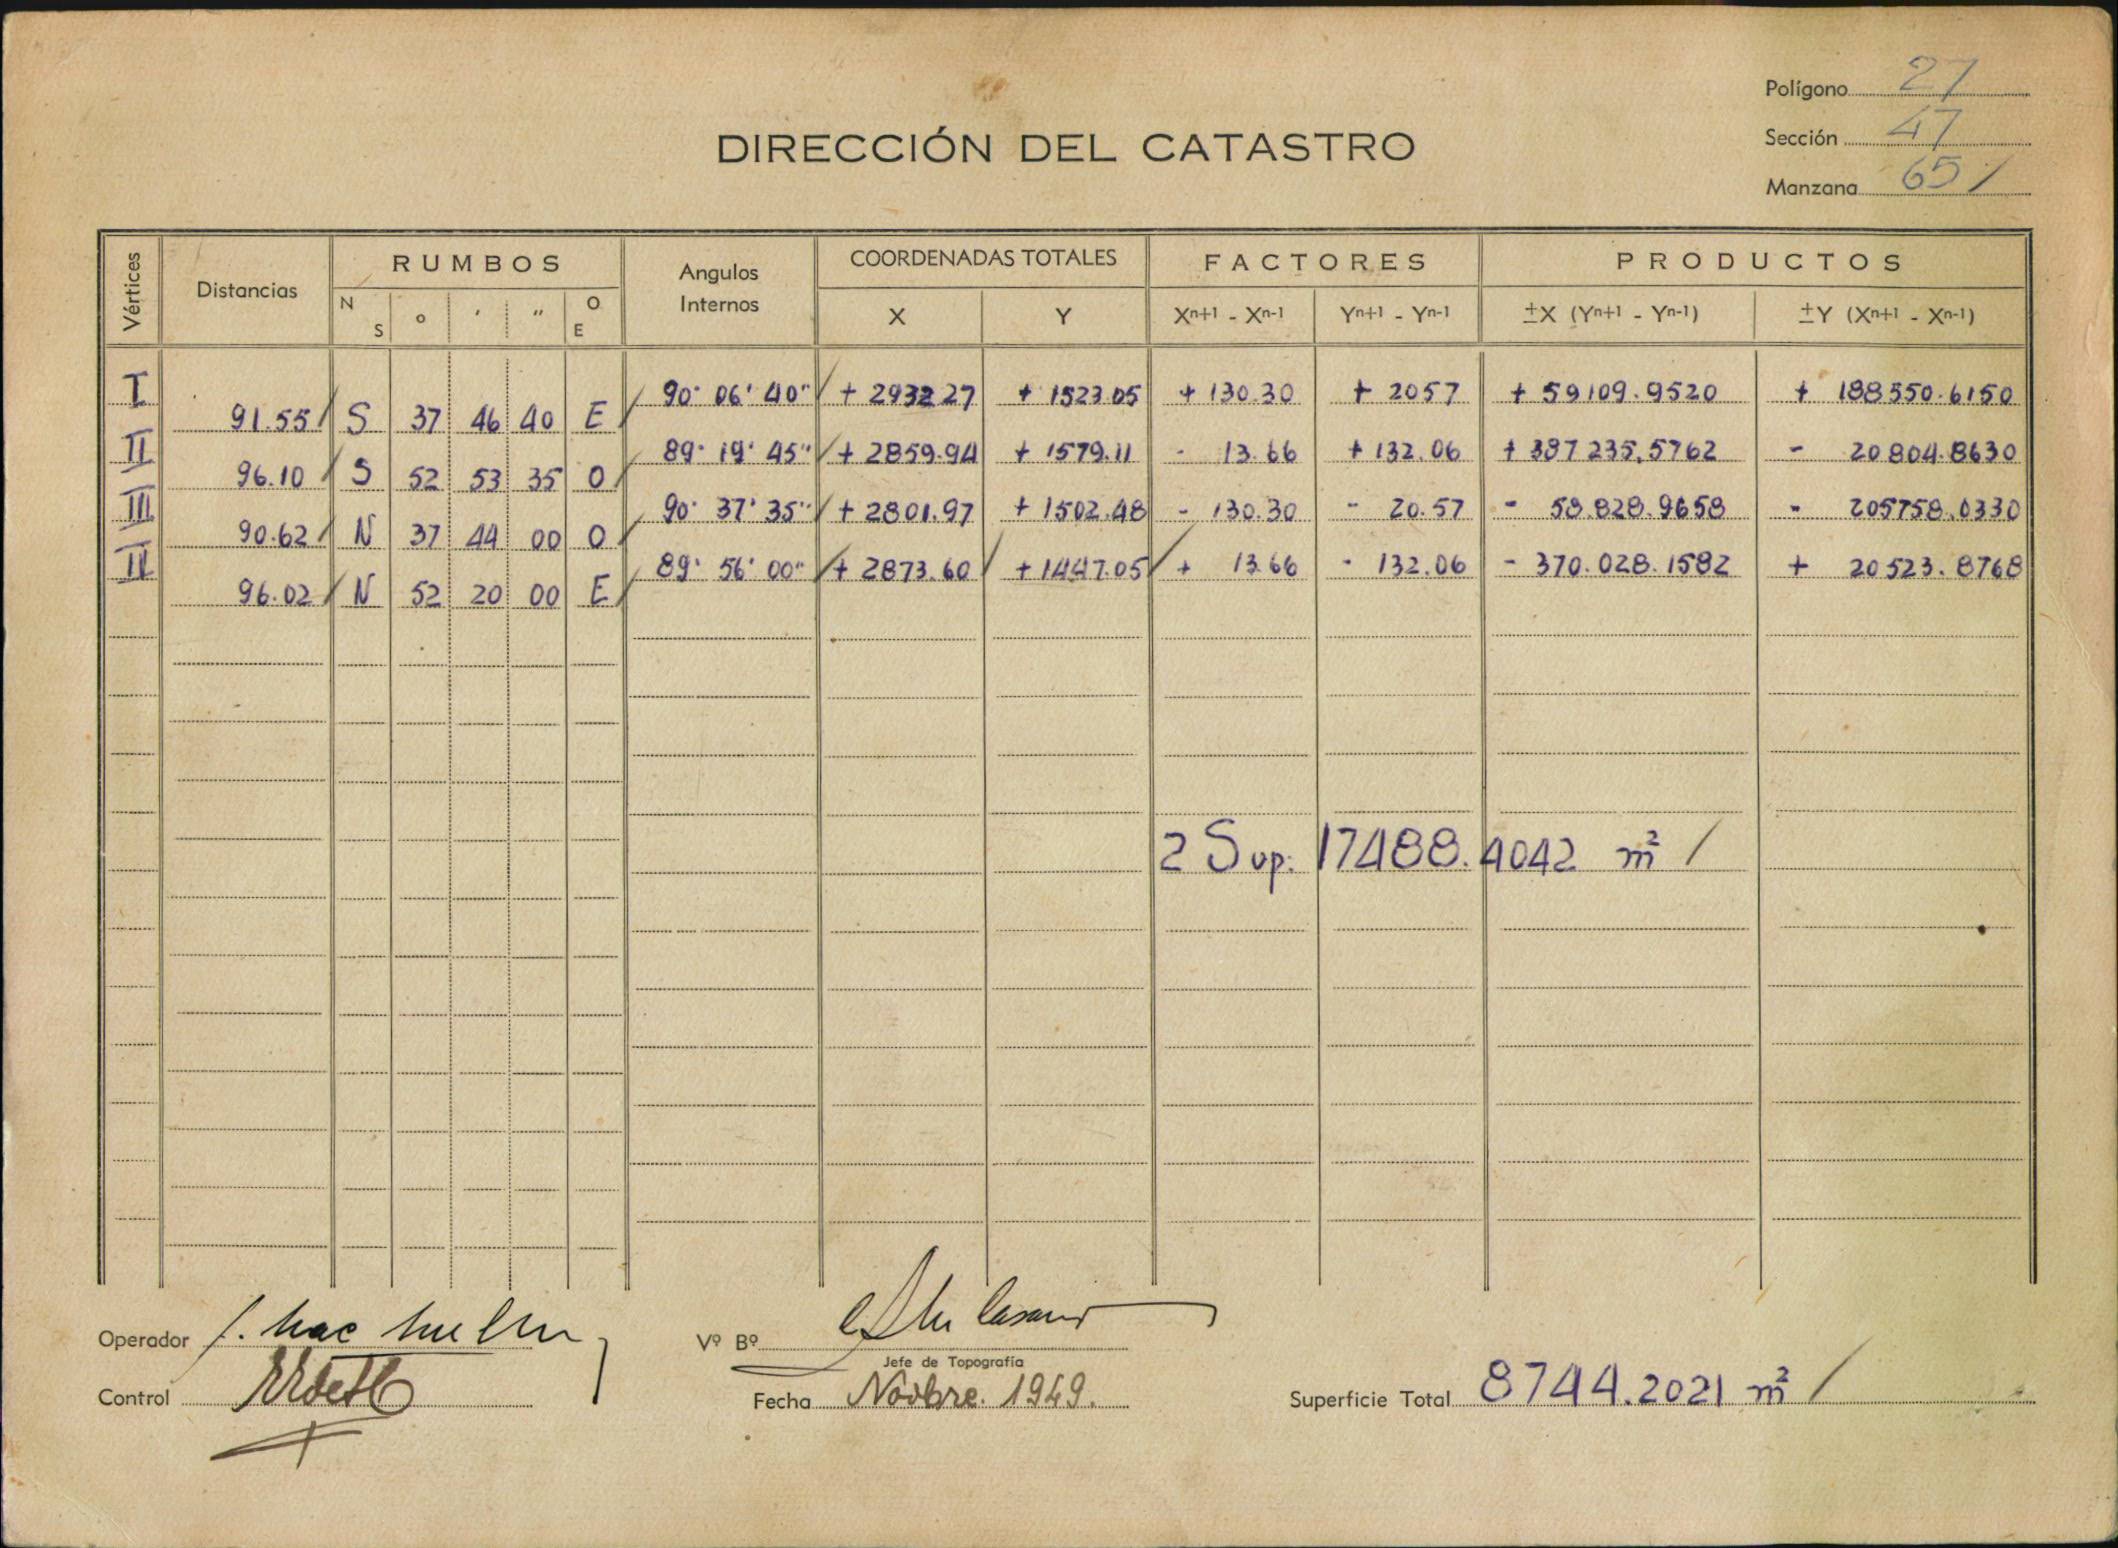 Polígono 27
Sección 47
Manzana 65 /
DIRECCIÓN DEL CATASTRO
Vértices Distancias RUMBOS Angulos Internos COORDENADAS TOTALES FACTORES PRODUCTOS
N S ° ' " O E X Y Xn+1 - Xn-1 Yn+1 - Yn-1 ±X (Yn+1 - Yn-1) ±Y (Xn+1 - Xn-1)
I 90° 06' 40" / + 2932 27 + 1523.05 + 130.30 + 2057 + 59109.9520 + 188550.6150
91.55 / S 37 46 40 E /
II 89° 19' 45" / + 2859.94 + 1579.11 - 13.66 + 132.06 + 387 235,5762 - 20804.8630
96.10 / S 52 53 35 O /
III 90° 37' 35" / + 2801.97 + 1502.48 - 130.30 - 20.57 - 58.828.9658 - 205758.0330
90.62 / N 37 44 00 O /
IV 89° 56' 00" / + 2873.60 / + 1447.05 / + 13.66 - 132.06 - 370.028.1582 + 20523.8768
96.02 / N 52 20 00 E /
2 Sup. 17488.4042 m² /
Operador
Control
Vº Bº
Jefe de Topografía
Fecha Novbre. 1949.
Superficie Total 8744.2021 m² /